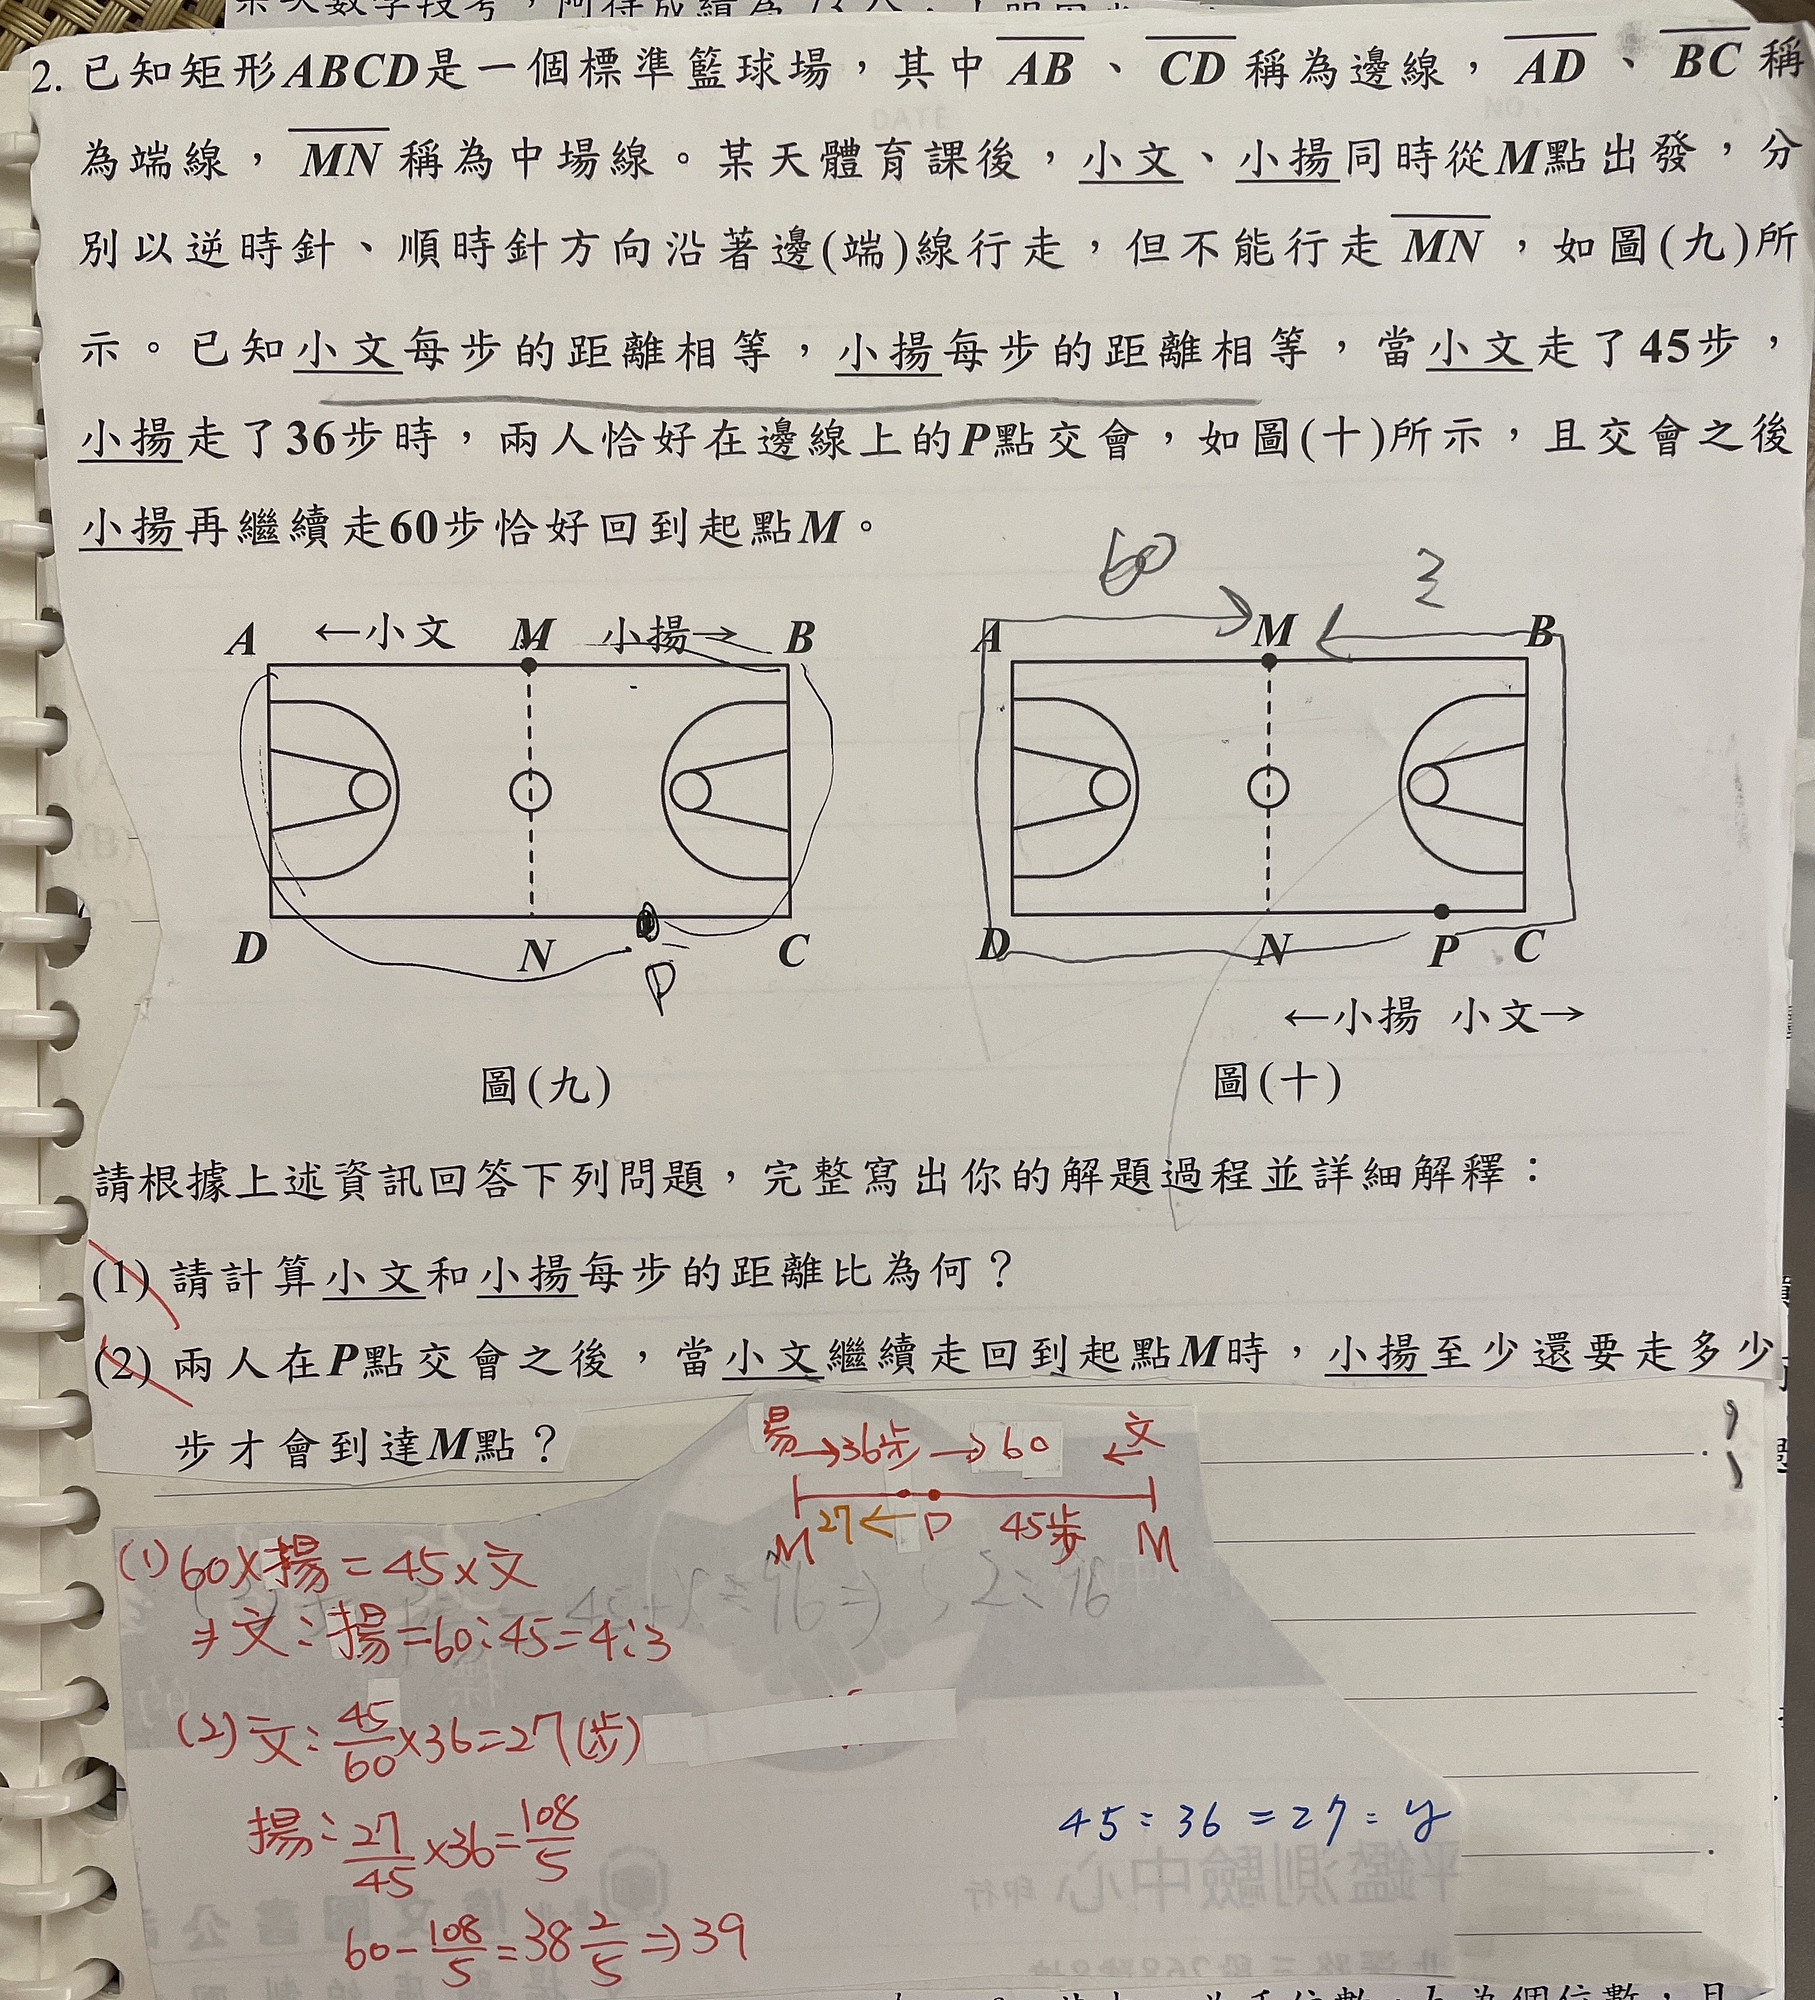 2. 已知矩形ABCD是一個標準籃球場，其中AB、CD稱為邊線，AD、BC稱
為端線，MN稱為中場線。某天體育課後，小文、小揚同時從M點出發，分
別以逆時針、順時針方向沿著邊(端)線行走，但不能行走MN，如圖(九)所
示。已知小文每步的距離相等，小揚每步的距離相等，當小文走了45步，
小揚走了36步時，兩人恰好在邊線上的P點交會，如圖(十)所示，且交會之後
小揚再繼續走60步恰好回到起點M。
60 ?
A ←小文 M 小揚→ B
A M B
D N C
P
D N P C
←小揚 小文→
圖(九) 圖(十)
請根據上述資訊回答下列問題，完整寫出你的解題過程並詳細解釋：
(1) 請計算小文和小揚每步的距離比為何？
(2) 兩人在P點交會之後，當小文繼續走回到起點M時，小揚至少還要走多少
步才會到達M點？
揚→36步→60 ←文
M 27← P 45步 M
(1) 60×揚=45×文
⇒文:揚=60:45=4:3
(2) 文:45/60×36=27(步)
揚:27/45×36=108/5
45:36=27:y
60-108/5=38 2/5⇒39
平鑑測驗中心 印行